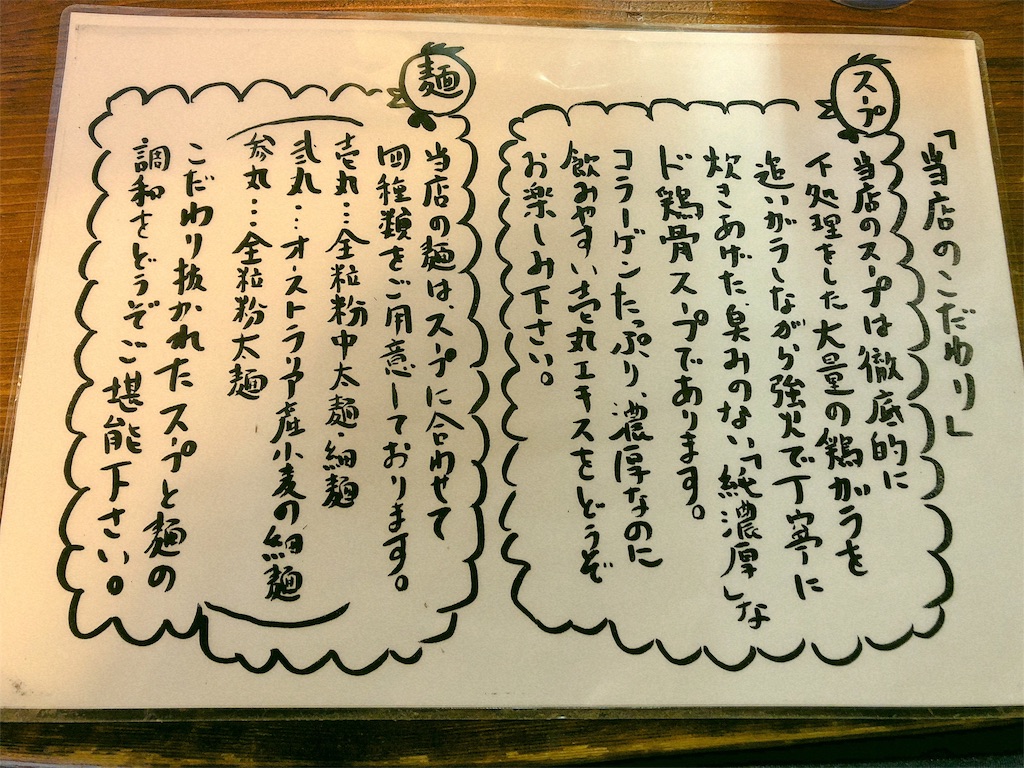 「当店のこだわり」
スープ
当店のスープは徹底的に
下処理をした大量の鶏ガラを
追いガラしながら強火で丁寧に
炊きあげた、臭みのない「純濃厚」な
ド鶏骨スープであります。
コラーゲンたっぷり、濃厚なのに
飲みやすい壱丸エキスをどうぞ
お楽しみ下さい。
麺
当店の麺は、スープに合わせて
四種類をご用意しております。
壱丸…全粒粉中太麺・細麺
弐丸…オーストラリア産小麦の細麺
参丸…全粒粉太麺
こだわり抜かれたスープと麺の
調和をどうぞご堪能下さい。